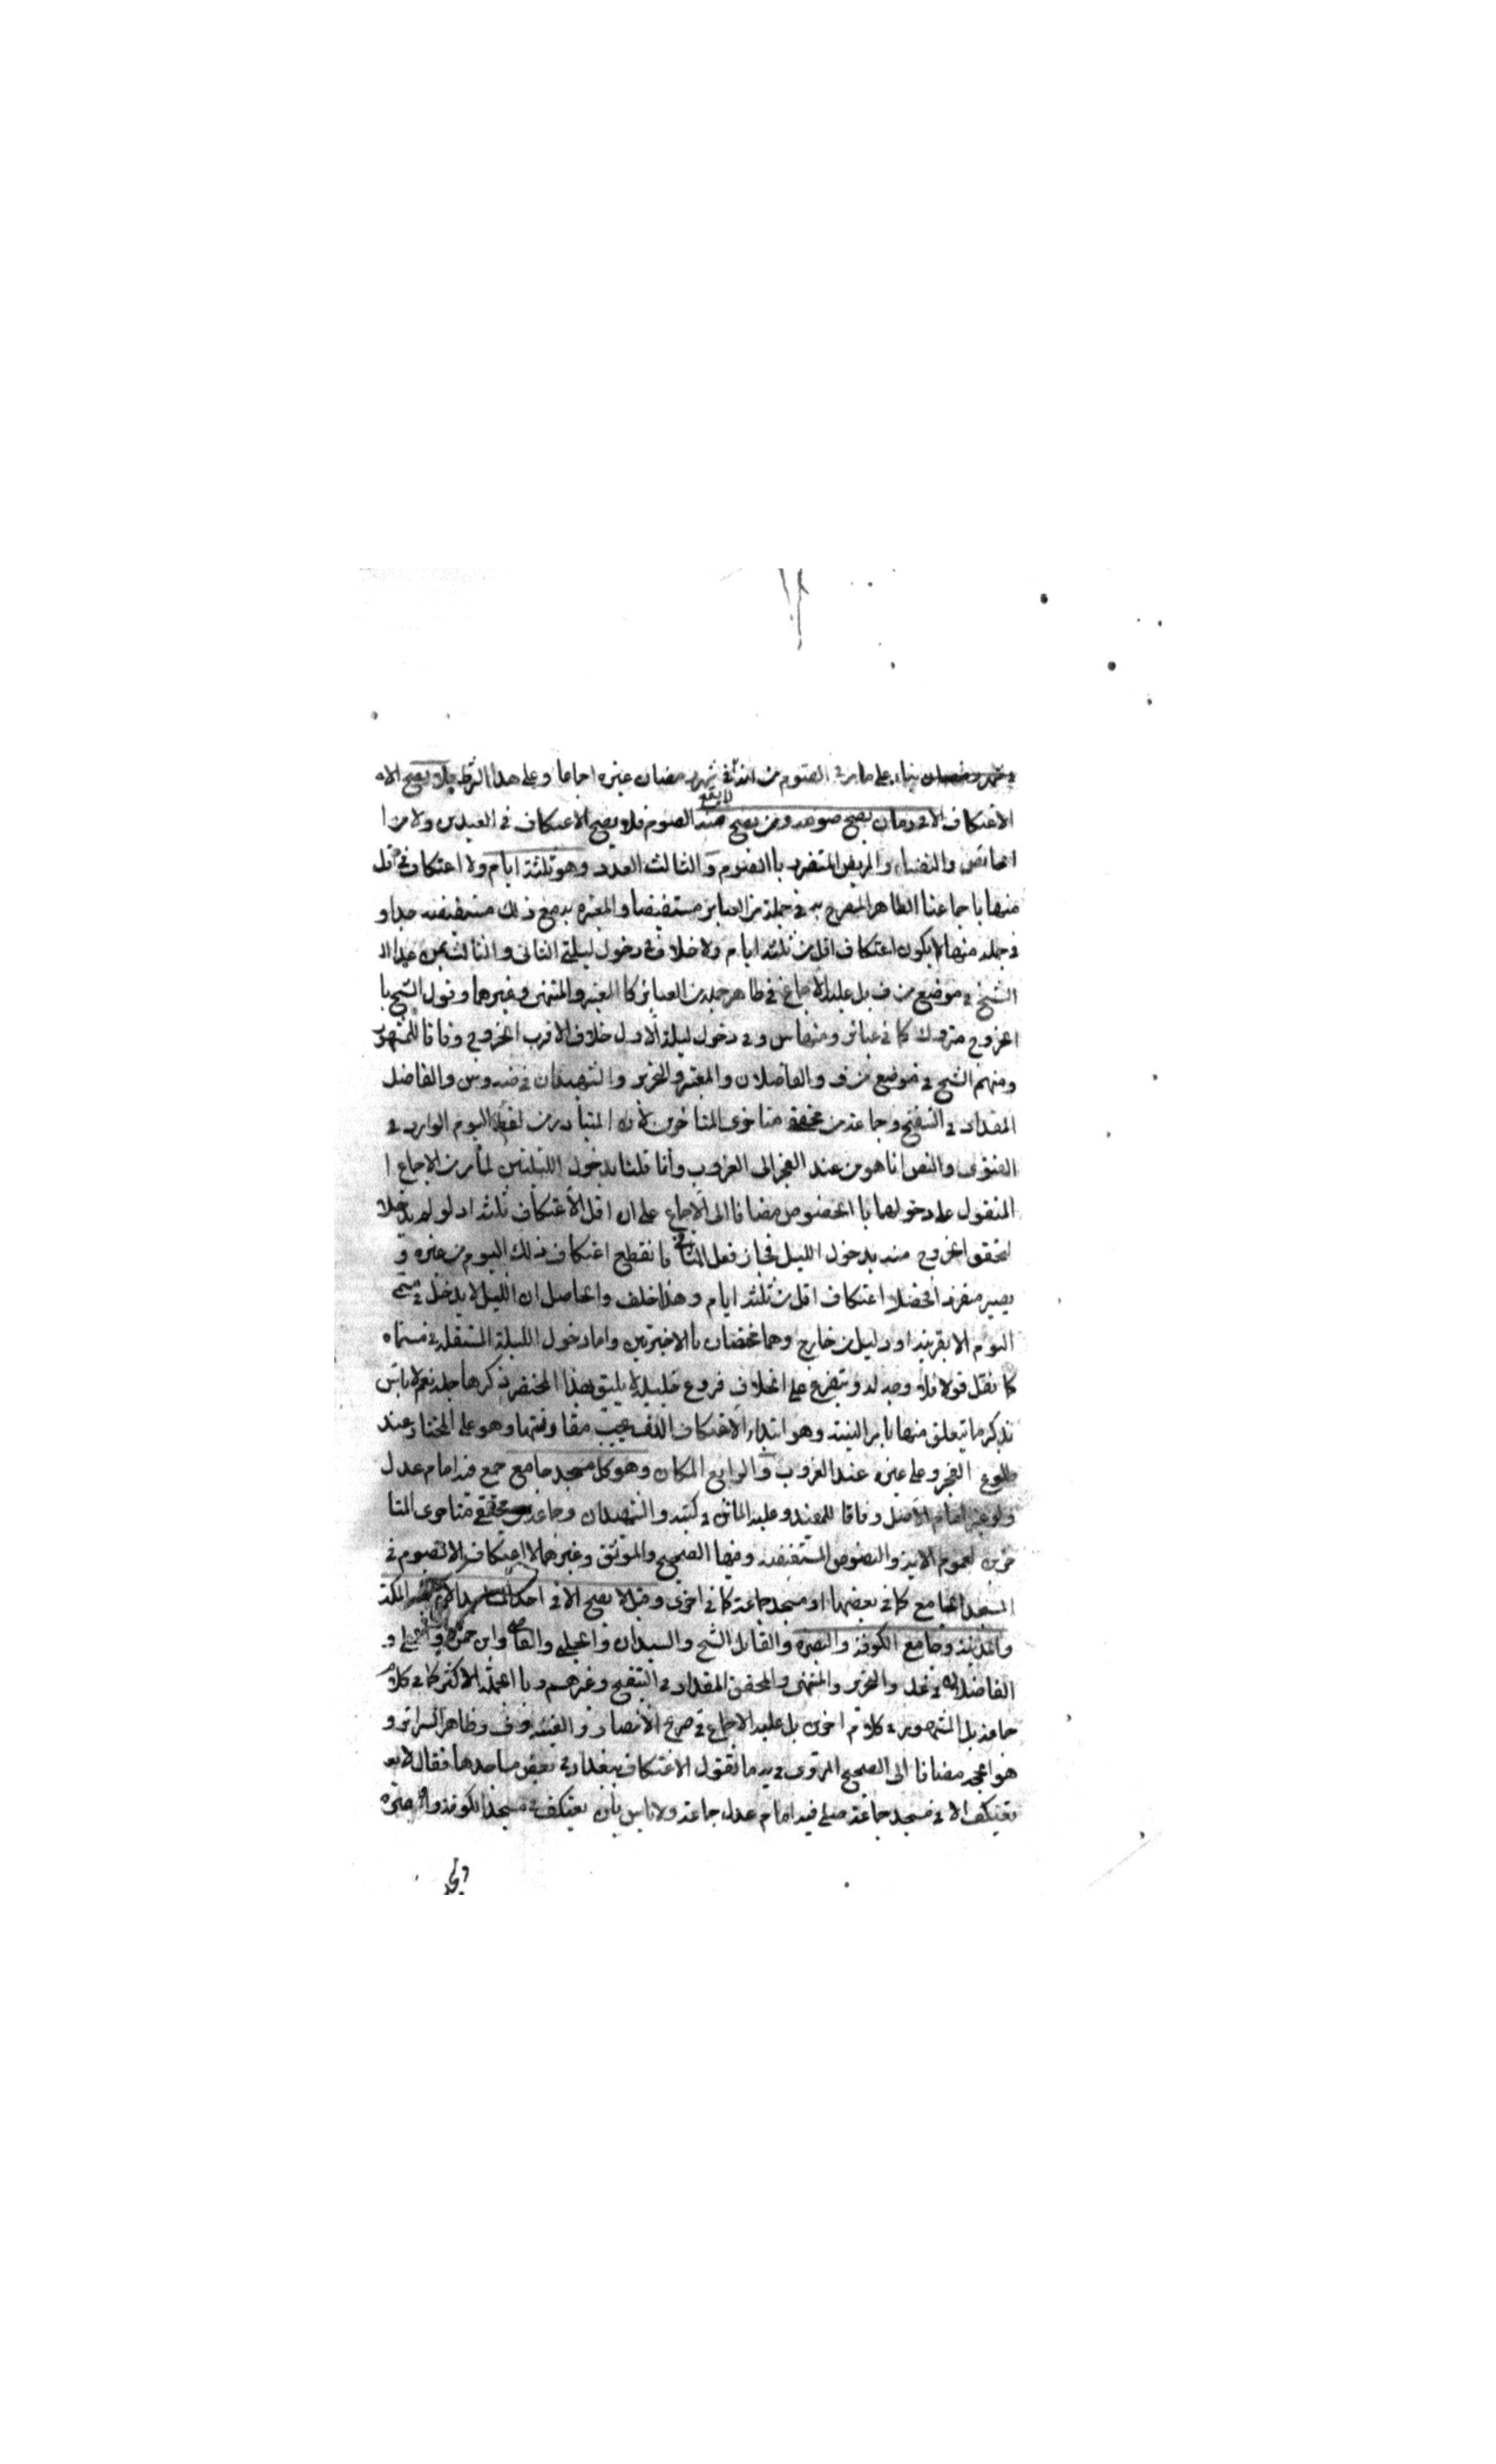 في شهر رمضان بناء على ما مر في الصوم من انه لا يقع في شهر رمضان غيره اجماعا وعلى هذا الشرط فلا يصح الا
الاعتكاف الا في زمان يصح صومه ومن يصح منه الصوم فلا يصح الاعتكاف في العيدين ولا من ا
الحائض والنفساء والمريض المتضرر باالصوم والثالث العدد وهو ثلثة ايام ولا اعتكاف في اقل
منها باجماعنا الظاهر المصرح به في جملة من العبائر مستفيضا والمعتبرة به مع ذلك مستفيضة جدا و
في جملة منها لا يكون اعتكاف اقل من ثلثة ايام ولا خلاف في دخول ليلتي الثاني والثالث عدا
الشيخ في موضع من ف بل عليه الاجماع في ظاهر جملة من العبائر كا المعتبر والمنتهى وغيرهما وقول الشيخ با
الخروج متروك كما في عبائر ومنها س وفي دخول ليلة الاول خلاف الاقرب الخروج وفاقا للمشهور
ومنهم الشيخ في موضع من ف والفاضلان والمعتبر والتحرير والشهيدان في ضه وس والفاضل
المقداد في التنقيح وجماعة من محققي متاخري المتاخرين لان المتبادر من لفظ اليوم الوارد في
الفتوى والنص انما هو من عند الفجر الى الغروب وانما قلنا بدخول الليلتين لما مر من الاجماع ا
المنقول على دخولهما با الخصوص مضافا الى الاجماع على ان اقل الاعتكاف ثلثة اذ لو لم يدخلا
لتحقق الخروج منه بدخول الليل فجاز فعل المنافي فانقطع اعتكاف ذلك اليوم من غيره و
يصير منفردا فحصل اعتكاف اقل من ثلثة ايام وهذا خلف والحاصل ان الليل لا يدخل في مسمى
اليوم الا بقرينة او دليل من خارج وهما مختصان باالاخيرتين واما دخول الليلة المستقبلة في مسماه
كما نقل قولا فلا وجه له ويتفرع على الخلاف فروع جليلة لا يليق بهذا المختصر ذكرها جملة نعم لا باس
بذكر ما يتعلق منها بامر النية وهو ابتداء الاعتكاف الذي يجب مقارنتها وهو على المختار عند
طلوع الفجر وعلى غيره عند الغروب والرابع المكان وهو كل مسجد جامع جمع فيه امام عدل
ولو غير امام الاصل وفاقا للمفيد وعليه الماتن في كتبه والشهيدان وجماعة من محققي متاخري المتا
خرين لعموم الاية والنصوص المستفيضة وفيها الصحيح والموثق وغيرهما لا اعتكاف الا بصوم في
المسجد الجامع كما في بعضها او مسجد جماعة كما في اخرى وقيل لا يصح الا في احد المساجد الاربعة مكة
والمدينة وجامع الكوفة والبصرة والقائل الشيخ والسيدان والحلبي والقاضي وابن حمزة والحلي و
الفاضلان في عد والتحرير والمنتهى والمحقق المقداد في التنقيح وغيرهم وبا الجملة الاكثر كما في كلام
جماعة بل المشهور في كلام اخرين بل عليه الاجماع في صريح الانتصار و الغنية وف وظاهر السرائر و
هو الحجة مضافا الى الصحيح المروي في يه ما تقول الاعتكاف ببغداد في بعض مساجدها فقال لا
تعتكف الا في مسجد جماعة صلى فيه امام عدل جماعة ولا باس بان يعتكف في مسجد الكوفة والبصرة